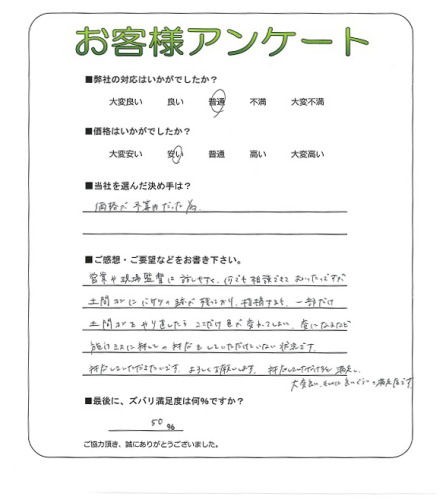 お客様アンケート
■弊社の対応はいかがでしたか?
大変良い 良い 普通 不満 大変不満
■価格はいかがでしたか?
大変安い 安い 普通 高い 大変高い
■当社を選んだ決め手は?
価格が予算内だった為。
■ご感想・ご要望などをお書き下さい。
営業や現場監督に話しやすく、何でも相談できて よかったですが
土間コンに の跡が残っており、指摘すると、一部だけ
土間コンをやり直したら ここだけ色が変わってしまい、気になるなど
施工ミスに対しての対応をしていただけていない状況です。
対応していただきたいです。よろしくお願いします。対応していただければ満足し、
大変良い、もしくは良いぐらいの満足度です。
■最後に、ズバリ満足度は何%ですか?
50 %
ご協力頂き、誠にありがとうございました。